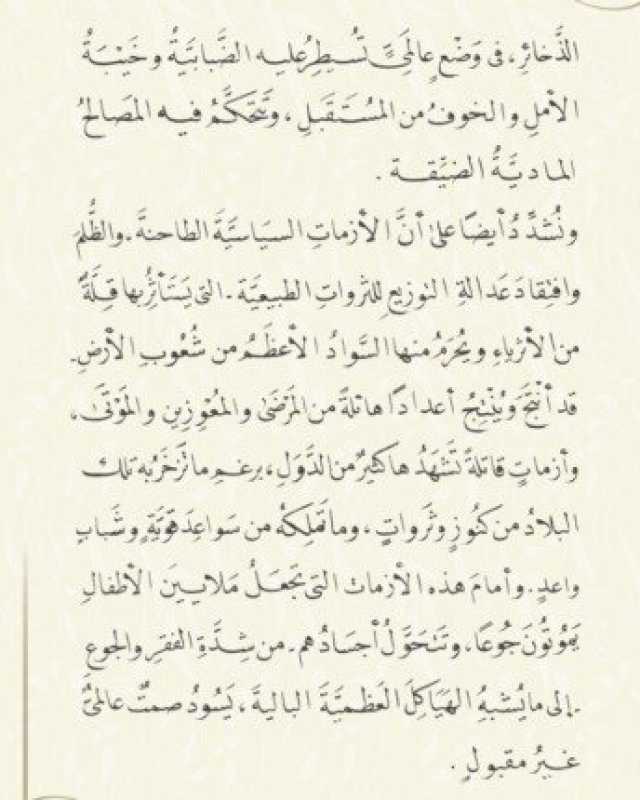 الذَّخائرِ، في وَضْعٍ عالميٍّ تُسيطِرُ عليه الضَّبابيَّةُ وخَيْبَةُ
الأملِ والخوفُ من المُسْتَقبَلِ، وتَتَحَكَّمُ فيه المَصَالحُ
الماديَّةُ الضيِّقة .
ونُشدِّدُ أيضًا على أنَّ الأزماتِ السياسيَّةَ الطاحنةَ ـ والظُّلمَ
وافتِقادَ عَدالةِ التوزيعِ للثرواتِ الطبيعيَّة ـ التي يَسْتَأثِرُ بها قِلَّةٌ
من الأثرياءِ ويُحرَمُ منها السَّوادُ الأعظَمُ من شُعُوبِ الأرضِ ـ
قد أنْتَجَ ويُنْتِجُ أعدادًا هائلةً من المَرْضَى والمُعْوِزِين والمَوْتَى،
وأزماتٍ قاتلةً تَشْهَدُها كثيرٌ من الدَّوَلِ، برغمِ ما تَزخَرُ به تلك
البلادُ من كنُوزٍ وثَرواتٍ، وما تَملِكُه من سَواعِدَ قويَّةٍ وشَبابٍ
واعدٍ . وأمامَ هذه الأزمات التي تجعَلُ مَلايينَ الأطفالِ
يَموُتُونَ جُوعًا، وتَتَحَوَّلُ أجسَادُهم ـ من شِدَّةِ الفقرِ والجوعِ
ـ إلى ما يُشبهُ الهَيَاكِلَ العَظميَّةَ الباليةَ، يَسُودُ صمتٌ عالميٌّ
غيرُ مقبولٍ .